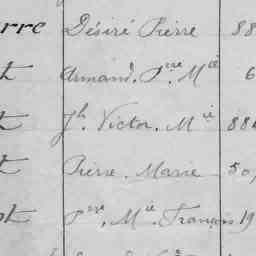 erre Désiré Pierre 88
t Armand. Pre Mie 6
t Jh. Victor. Mie 884
t Pierre. Marie 50,
ot Pre, Mie. François 19